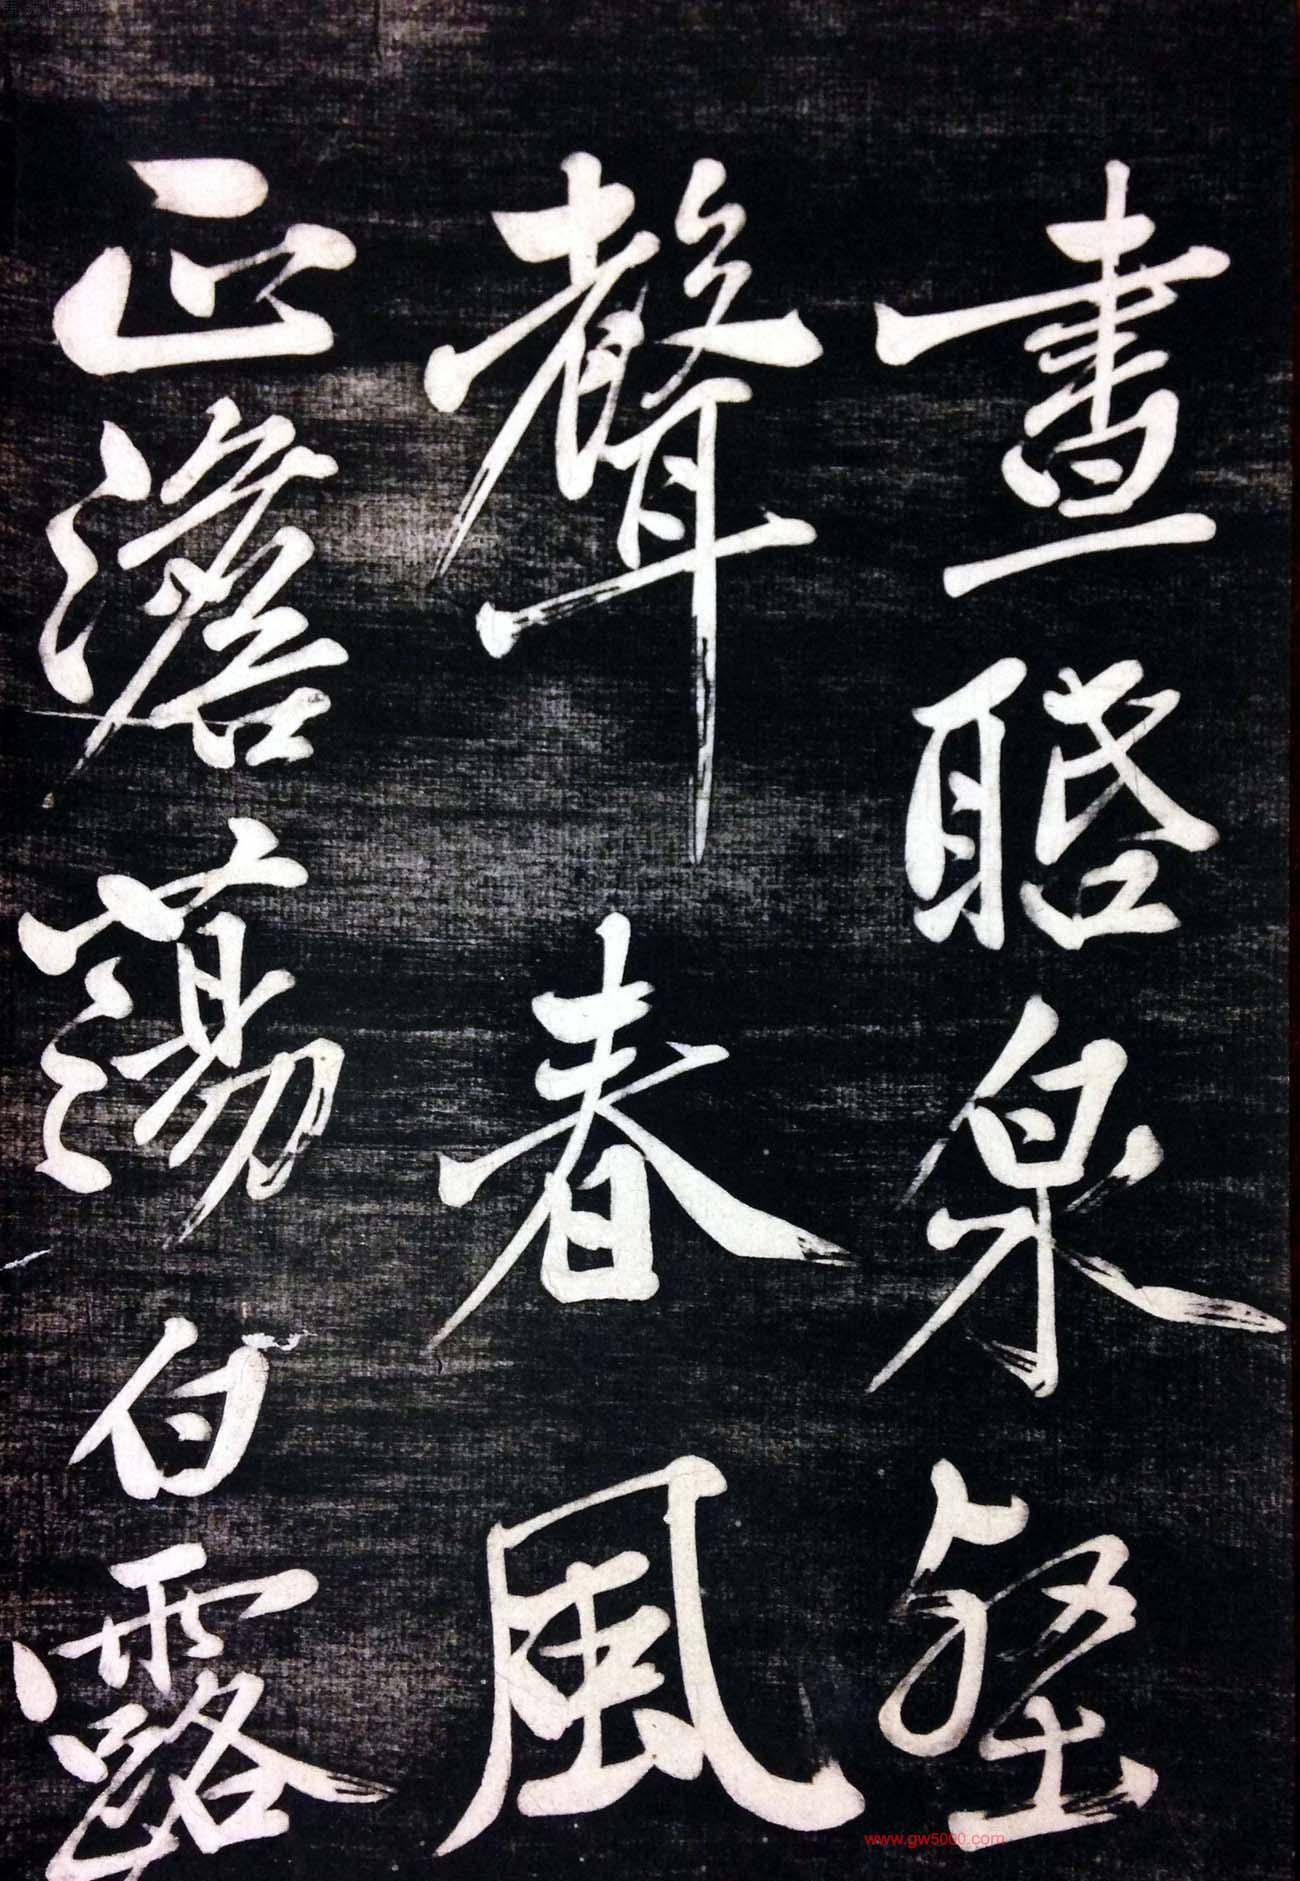 晝聒泉壑
聲春風
正澹蕩白露
www.gw5000.com